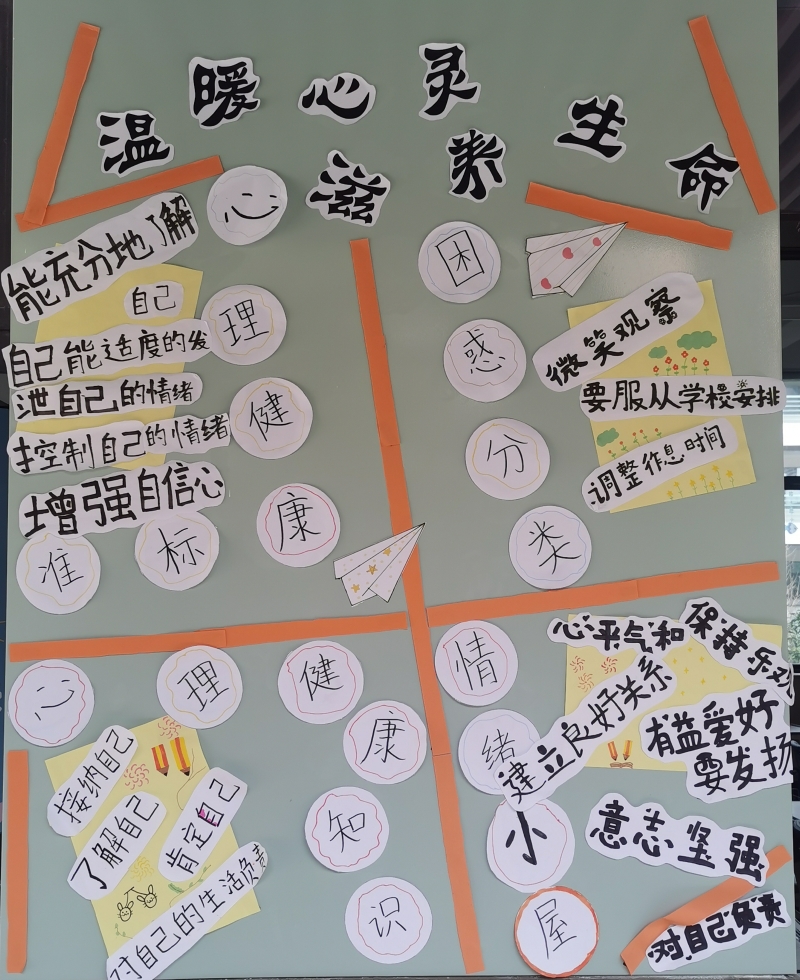 温暖心灵
滋养生命
能充分地了解
自己
自己能适度的发
泄自己的情绪
控制自己的情绪
增强自信心
心理健康
标准
困惑分类
微笑观察
要服从学校安排
调整作息时间
心理健康知识
接纳自己
了解自己
肯定自己
对自己的生活负责
情绪小屋
心平气和
保持乐观
建立良好关系
有益爱好
要发扬
意志坚强
对自己负责